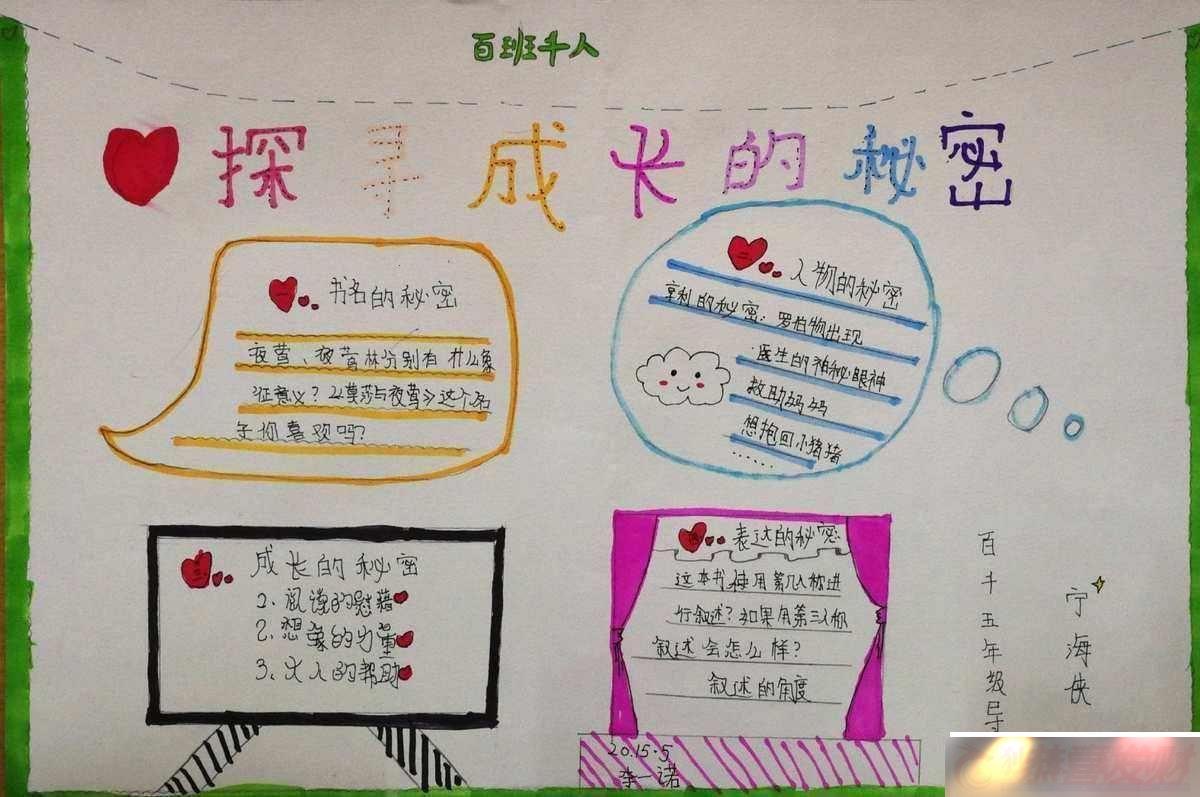 百班千人
探寻成长的秘密
一 书名的秘密
夜莺、夜莺林分别有什么象
征意义?《莫莎与夜莺》这个名
字你喜欢吗?
二 人物的秘密
亨利的秘密:罗伯物出现
医生的神秘眼神
救助妈妈
想抱回小猪猪
……
三 成长的秘密
1、阅读的慰藉
2、想象的力量
3、大人的帮助
四 表达的秘密
这本书使用第几人称进
行叙述?如果用第三人称
叙述会怎么样?
叙述的角度
2015·5
李一诺
百千五年级导
宁海侠